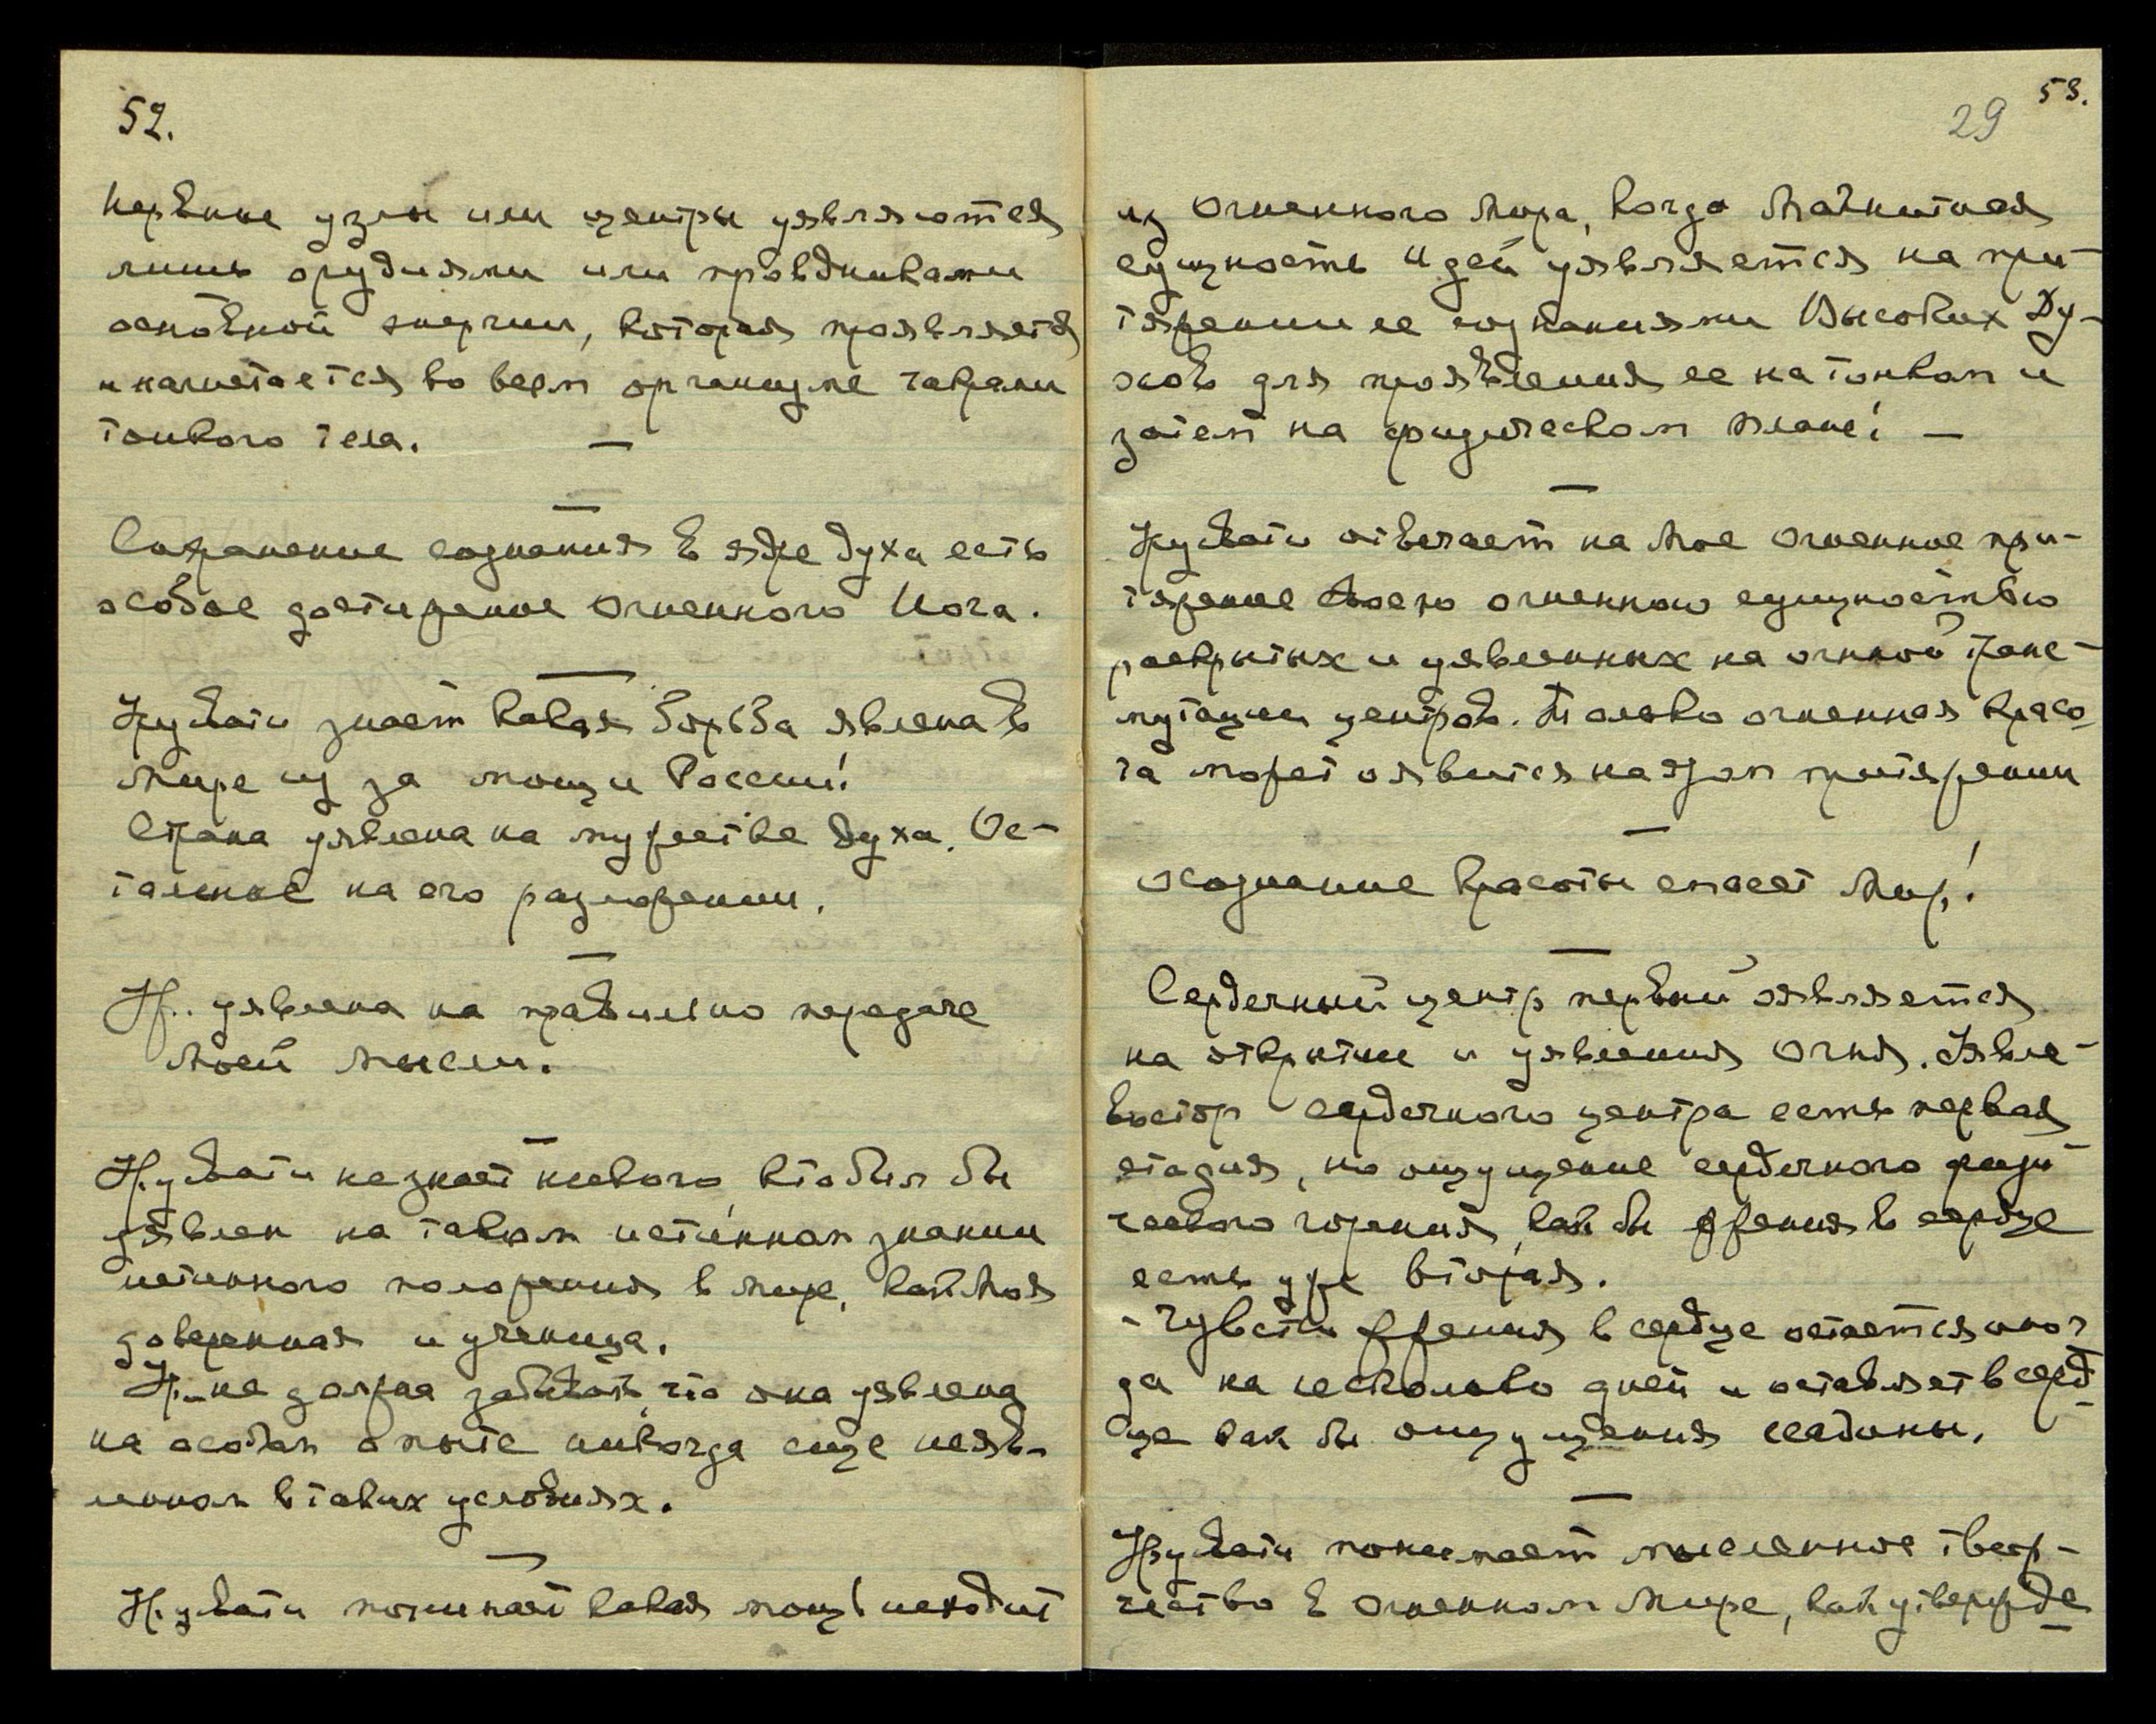 52.
Нервные узлы или центры уявляются
лишь орудиями или проводниками
основной энергии, которая проявляется
и нагнетается во всем организме
тонкого тела. —
Сохранение сознания в ядре духа есть
особое достижение Огненного Йога.
Урувати знает какая борьба явлена в
Мире из за мощи России!
Страна уявлена на мужестве духа. Ос-
тальное на его разложении.
Ур. уявлена на правильно передаче
Моей Мысли.
Урувати не знает никого, кто был бы
уявлен на таком истинном знании
истинного положения в Мире, как Моя
доверенная и ученица.
Ур. не должна забывать, что она уявлена
на особом опыте никогда еще неяв-
ленном в таких условиях.
Урувати понимает какая мощь исходит
53.
29
из Огненного Мира, когда Магнитная
сущность Идей уявляется на при-
тяжении ее сознаниями Высоких Ду-
хов для проявления ее на тонком и
затем на физическом плане! —
Урувати отвечает на Мое Огненное при-
тяжение своею огненною сущностью
раскрытых и уявленных на огненной транс-
мутации центров. Только огненная красо-
та может оявится на этом притяжении
осознание Красоты спасет Мир!
Сердечный центр первый оявляется
на открытие и уявления Огня. Явле-
сердечного центра есть первая
стадия, но ощущение сердечного физи
ческого горения, как бы жжения в сердце
есть уже вторая.
- Чувство жжения в сердце остается иног
да на несколько дней и оставляет в серд
це как бы ощущения ссадины.
Урувати понимает мысленное твор-
чество в Огненном Мире, как утвержде